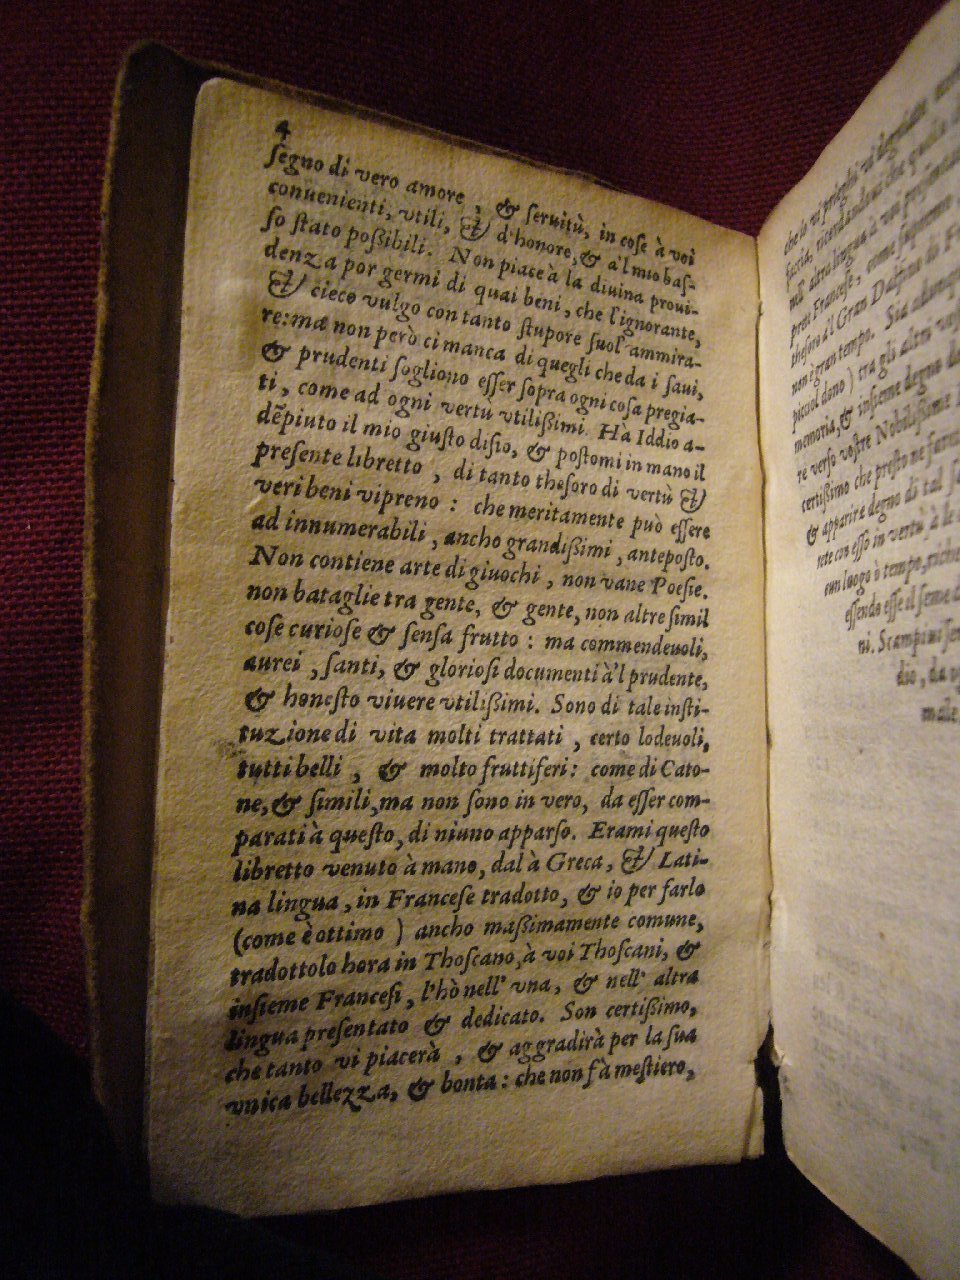 4
segno di vero amore, & seruitù, in cose à voi
conuenienti, vtili, & d'honore, & à'l mio bas-
so stato possibili. Non piace à la diuina proui-
denza por germi di quai beni, che l'ignorante,
& cieco vulgo con tanto stupore suol' ammira-
re: mæ non però ci manca di quegli che da i saui,
& prudenti sogliono esser sopra ogni cosa pregia-
ti, come ad ogni vertu vtilissimi. Hà Iddio a-
dẽpiuto il mio giusto disio, & postomi in mano il
presente libretto, di tanto thesoro di vertù &
veri beni vipreno: che meritamente può essere
ad innumerabili, ancho grandissimi, anteposto.
Non contiene arte di giuochi, non vane Poesie.
non bataglie tra gente, & gente, non altre simil
cose curiose & sensa frutto: ma commendeuoli,
aurei, santi, & gloriosi documenti à'l prudente,
& honesto viuere vtilissimi. Sono di tale insti-
tuzione di vita molti trattati, certo lodeuoli,
tutti belli, & molto fruttiferi: come di Cato-
ne, & simili, ma non sono in vero, da esser com-
parati à questo, di niuno apparso. Erami questo
libretto venuto à mano, dal à Greca, & Lati-
na lingua, in Francese tradotto, & io per farlo
(come è ottimo) ancho massimamente comune,
tradottolo hora in Thoscano, à voi Thoscani, &
insieme Francesi, l'hò nell' vna, & nell' altra
lingua presentato & dedicato. Son certissimo,
che tanto vi piacerà, & aggradirà per la sua
vnica bellezza, & bonta: che non fà mestiero,
che io vi prieghi
faccia, ricordandoui che
altra lingua, à voi
Francese, come supremo
thesoro à'l Gran Dalfino di
non è gran tempo. Sia adunque
picciol dono) tra gli altri
memoria, & insieme degno
re verso vostre Nobilissime
certissimo che presto ne
& apparirà degno di tal
rete con esso in vertù à le
cun luogo ò tempo,
essendo esse il seme
ni. Scampiui
dio, da
male